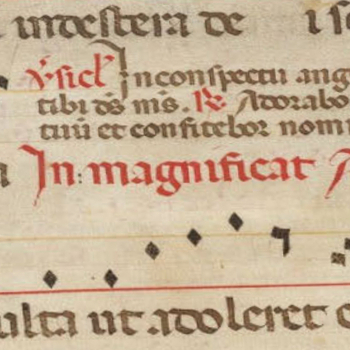 indestera de i s
v̉sicl̉ In conspectu ang
tibi ds ms. R̷ Adorabo
tuu et confitebor nomi
In magnificat A
ulta ut adoleret